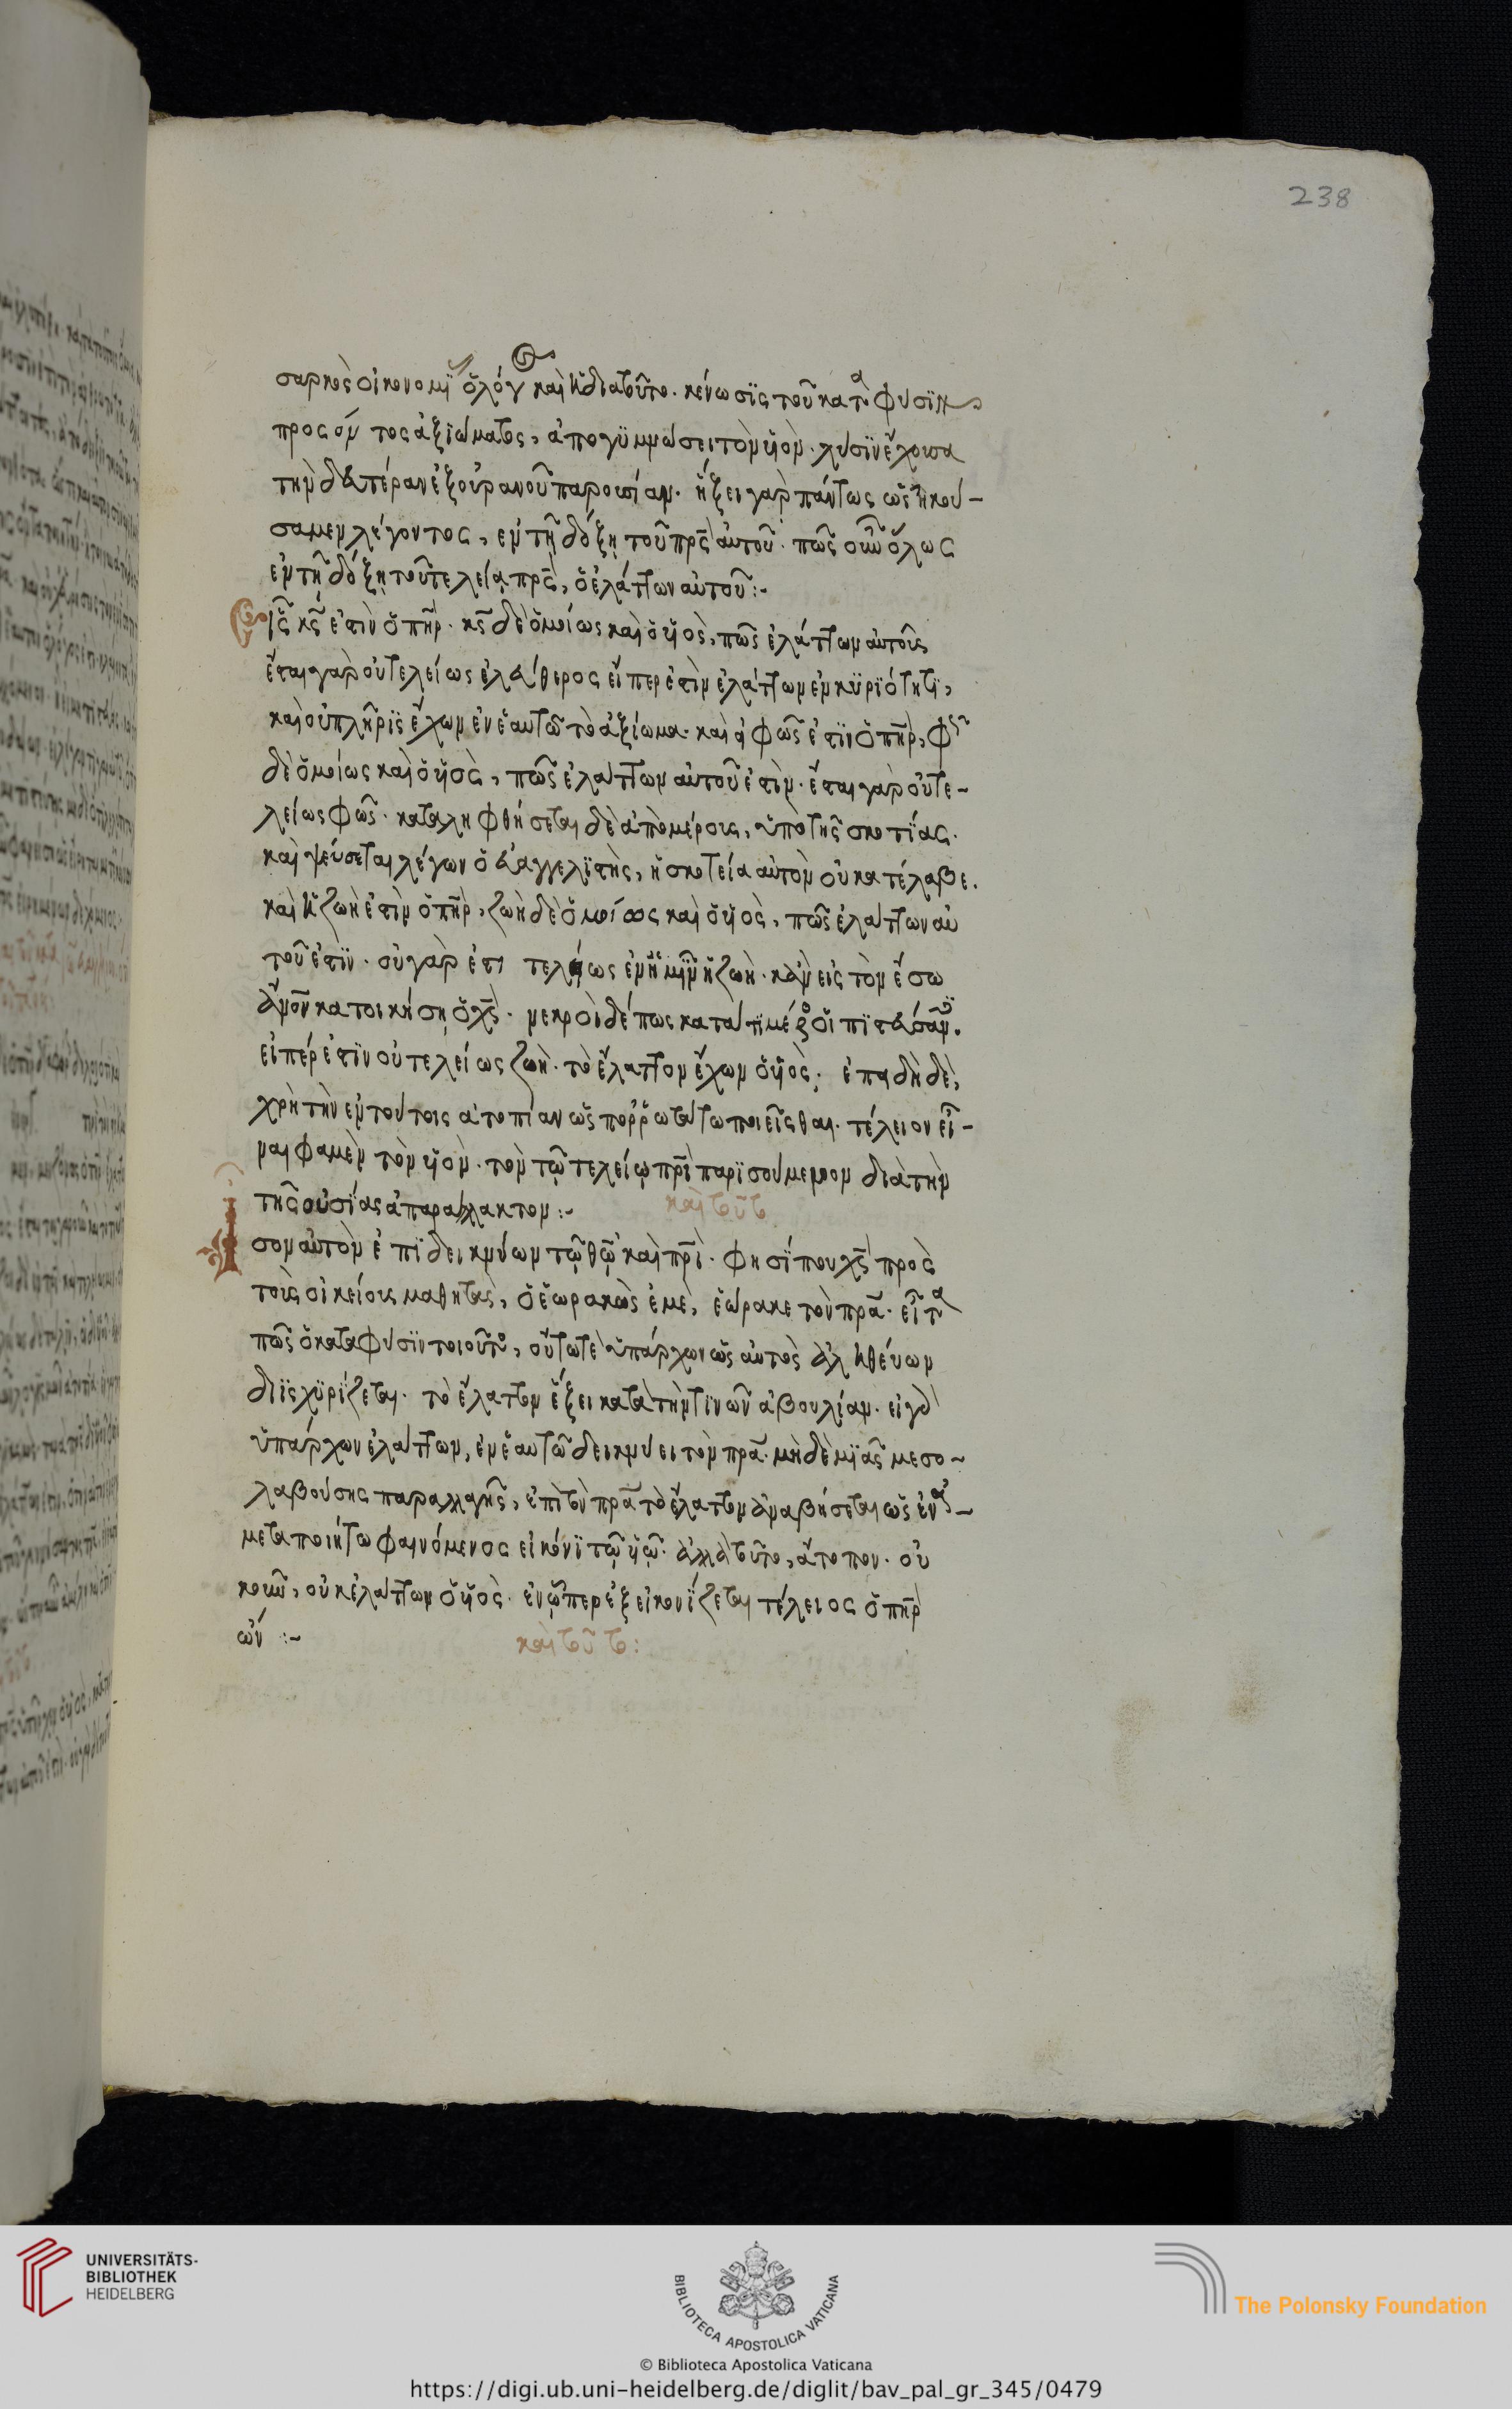 238
σαρκὸς οἰκονομί ὁ λόγ καὶ ἡ διατοῦτο. κένωσϊς τοῦ κατ φυσϊν
προσόντος ἀξϊώματος, ἀπογϋμνώσει τὸν ϋἱὸν. λυσϊν ἔχουσα
τὴν δευτέραν ἐξ οὐρανοῦ παρουσίαν. ἥξει γὰρ πάντως ὡς ἠκού-
σαμεν λέγοντος, ἐν τῆ δόξη τοῦ πρς αὐτοῦ. πῶς οὖν ὅλως
ἐν τῆ δόξη τοῦ τελείου πρς, ὁ ἐλάττων αὐτοῦ:-
Εἷς κς ἐστὶν ὁ πηρ. κς δὲ ὁμοίως καὶ ὁ ὑἱὸς, πῶς ἐλάττων αὐτοῦ
ἔσται γὰρ οὐ τελείως ἐλεύθερος εἴπερ ἐστὶν ἐλάττων ἐν κϋρϊότητϊ,
καὶ οὐ πλῆρϊς ἔχων ἐν ἑαυτῶ τὸ ἀξίωμα. καὶ εἰ φῶς ἐστϊν ὁ πηρ, φς
δὲ ὁμοίως καὶ ὁ ὑἱὸς, πῶς ἐλάττων αὐτοῦ ἐστὶν. ἔσται γὰρ οὐ τε-
λείως φῶς. καταληφθήσεται δὲ ἀπὸ μέρους, ὑπὸ τῆς σκοτϊας.
καὶ ψεύσεται λέγων ὁ εὐαγγελϊστὴς, ἡ σκοτεία αὐτὸν οὐ κατέλαβε.
καὶ ἡ ζωὴ ἐστὶν ὁ πηρ, ζωὴ δὲ ὁμοίως καὶ ὁ ὑἱὸς, πῶς ἐλάττων αὐ
τοῦ ἐστϊν. οὐ γὰρ ἔστι τελείως ἐν ἡμῖν ἡ ζωὴ. κἂν εἰς τὸν ἔσω
ἄνον κατοικήση ὁ χς. νεκροὶ δέ πως κατά τι μέρος οἱ πϊστεύσαν.
εἰπέρ ἐστϊν οὐ τελείως ζωὴ. τὸ ἔλαττον ἔχων ὁ ὑἱὸς. ἐπειδὴ δὲ,
χρὴ τὴν ἐν τούτοις ἀτοπίαν ὡς πορρωτάτω ποιεῖσθαι. τέλειον εἶ-
ναι φαμὲν τὸν ὑἱὸν. τὸν τῶ τελείω πρὶ παρϊσούμενον διὰ τὴν
τῆς οὐσίας ἀπαράλλακτον:-
καὶ τοῦτο
Ἴσον αὐτὸν ἐπϊδεικνύων τῶ θῶ καὶ πρὶ. φησί που χς πρὸς
τοὺς οἰκείους μαθητὰς, ὁ ἑωρακὼς ἐμὲ, ἑώρακε τὸν πρα. εἶτα
πῶς ὁ κατὰ φυσϊν τοιοῦτος, οὕτω τὲ ὑπάρχων ὡς αὐτὸς ἀληθεύων
διϊσχϋρϊζεται. τὸ ἔλαττον ἕξει κατὰ τὴν τϊνῶν ἀβουλίαν. εἰ γὰρ
ὑπάρχων ἐλάττων, ἐν ἑαυτῶ δεικνύει τὸν πρα. μηδὲμϊᾶς μεσο-
λαβούσης παραλλαγῆς, ἐπὶ τὸν πρα τὸ ἔλαττον ἀναβήσεται ὡς ἐν-
μεταποιήτω φαινόμενος εἰκόνϊ τῶ ὑἱῶ. ἀλλὰ τοῦτο, ἄτοπον. οὐ
κοῦν, οὐκ ἐλάττων ὁ ὑἱὸς. ἐν ᾧπερ ἐξεικονϊζεται τέλειος ὁ πηρ
ὤν :-
καὶ τοῦ το:
UNIVERSITÄTS-
BIBLIOTHEK
HEIDELBERG
BIBLIOTECA APOSTOLICA VATICANA
The Polonsky Foundation
© Biblioteca Apostolica Vaticana
https://digi.ub.uni-heidelberg.de/diglit/bav_pal_gr_345/0479